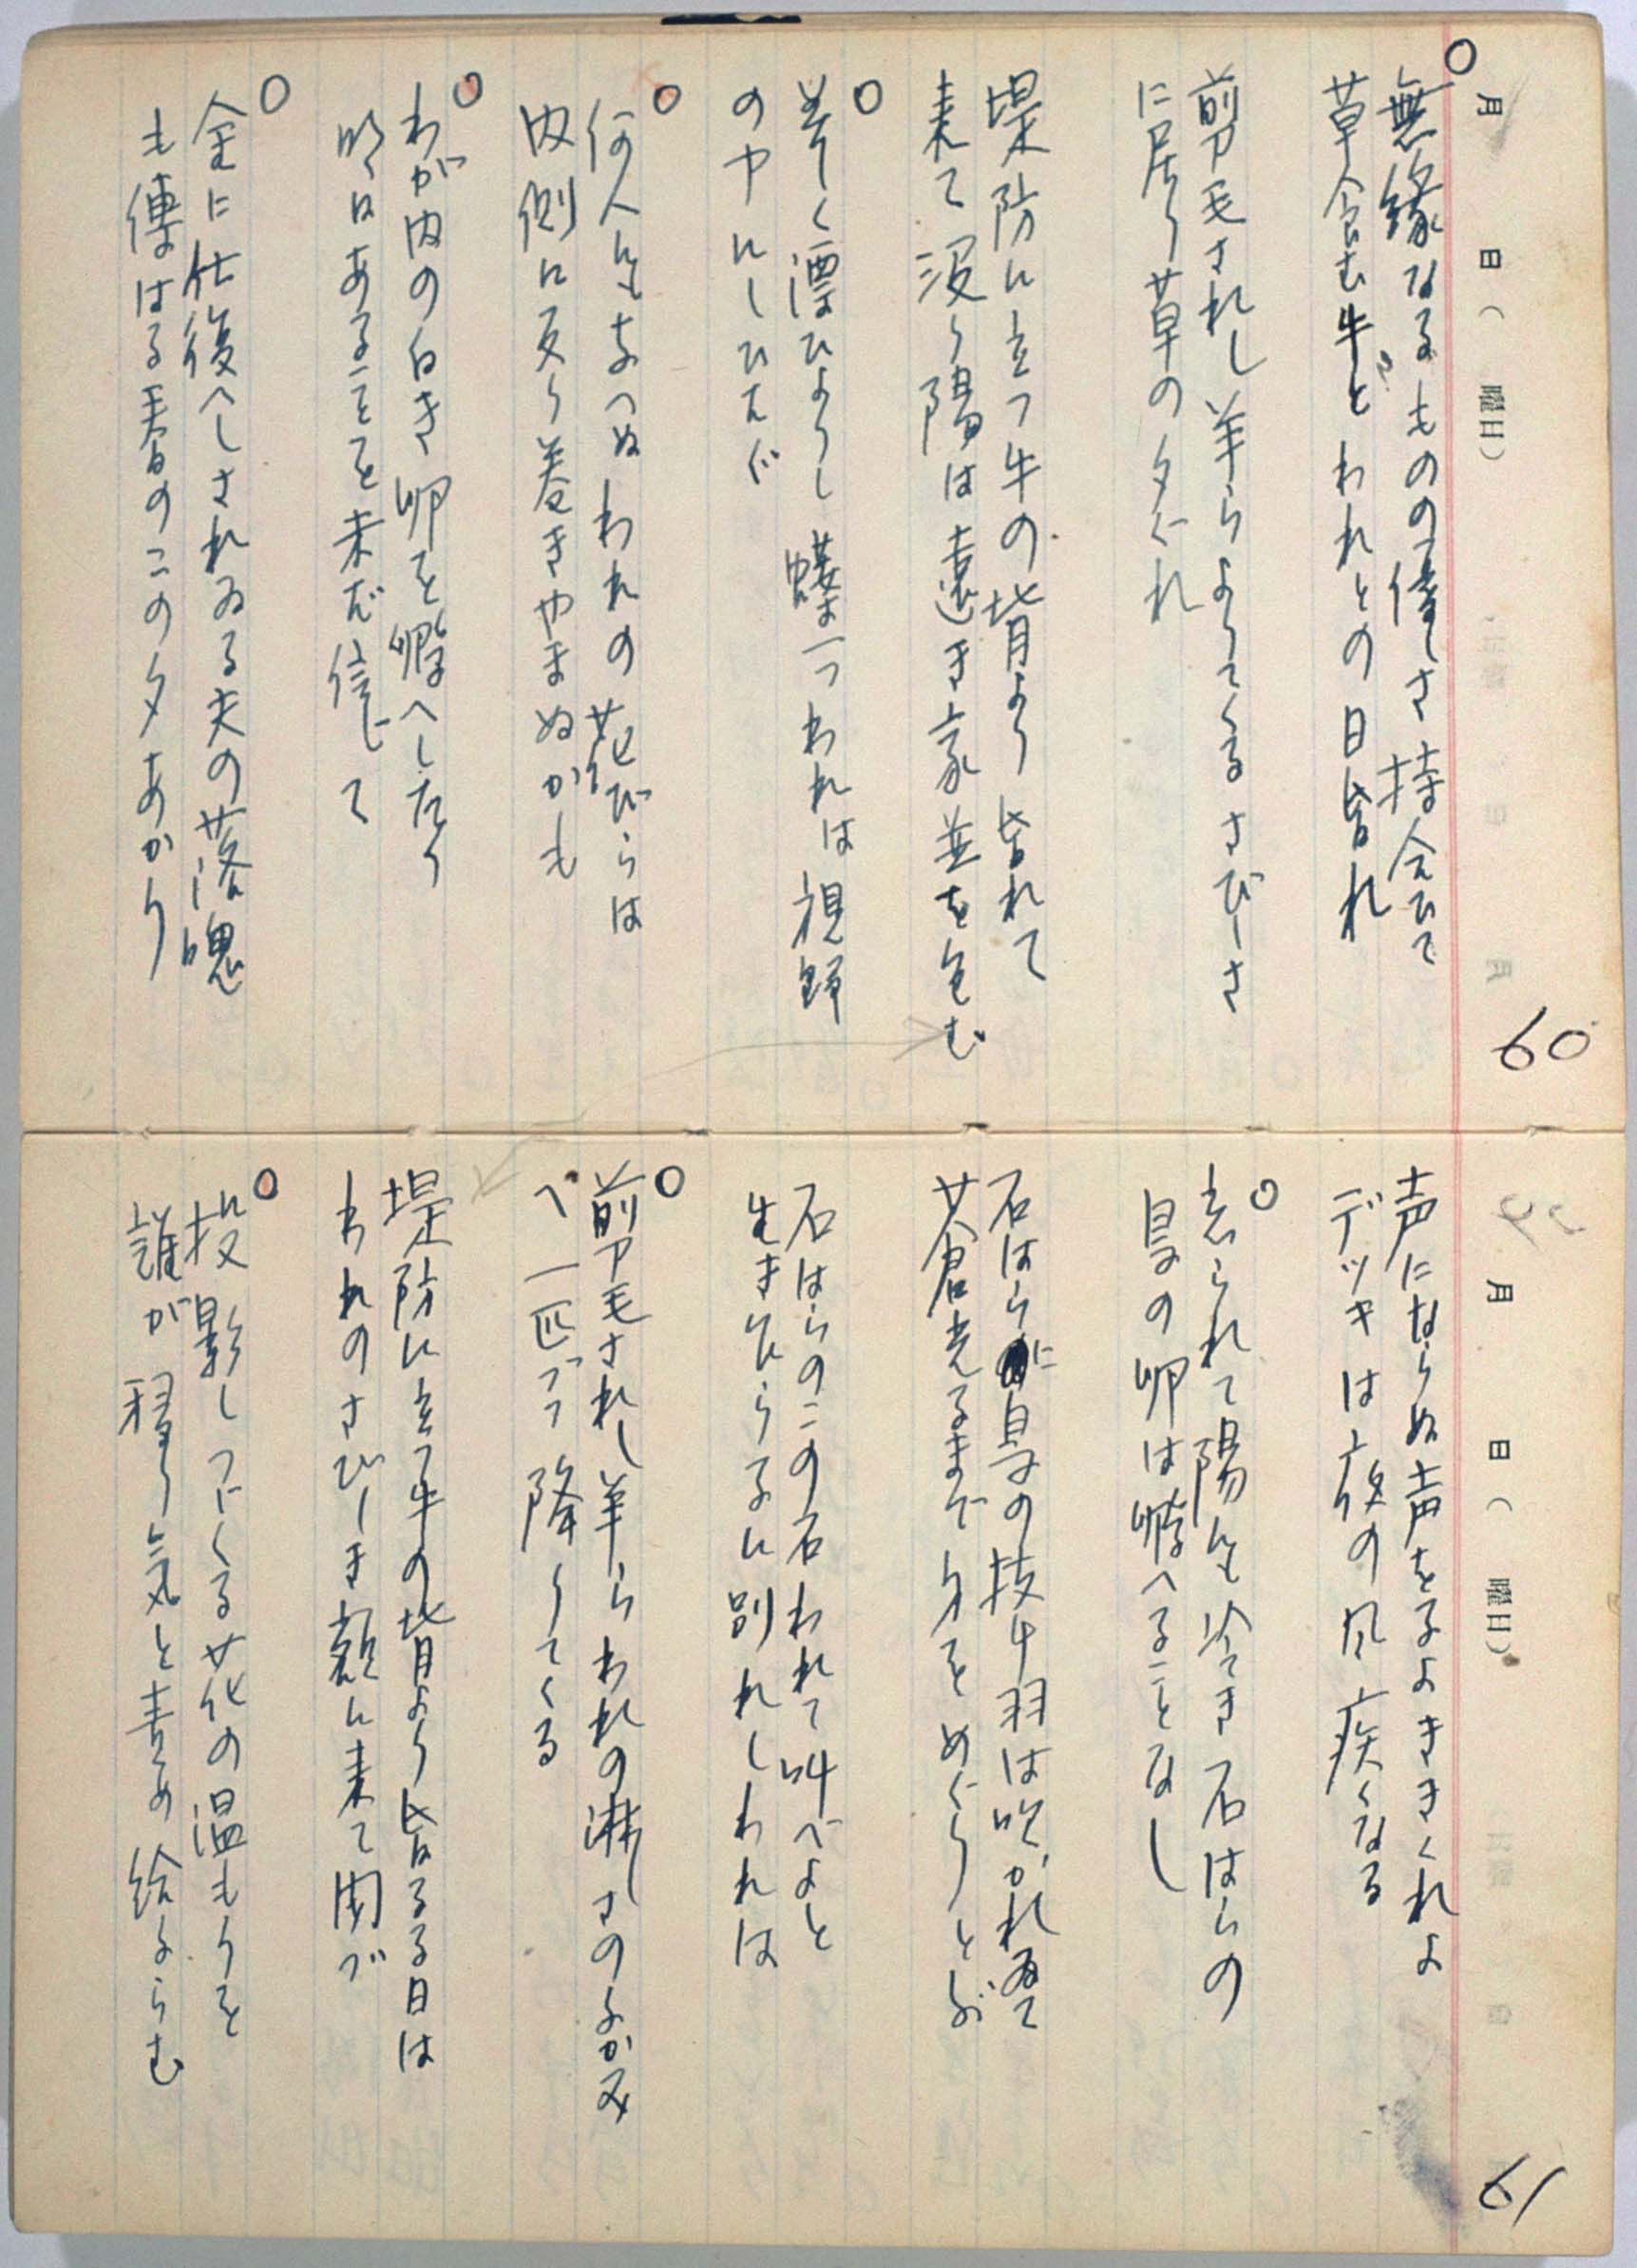 60
月 日( 曜日)
○
無縁なるものの優しさ持合ひて
草食む牛とわれとの日昏れ
剪毛されし羊らよりてくるさびしさ
に居り草の夕ぐれ
堤防に立つ牛の背より昏れて
来て没り陽は遠き家並を包む
○
差しく漂ひよりし蝶一つわれは視野
の中にしひたぐ
○
何人にも与へぬわれの花びらは
内側に反り巻きやまぬかも
○
わが内の白き卵を孵へしたり
明日はあることを未だ信じて
○
金に仕復へしされゐる夫の落魄
も傳はる春のこの夕あかり
61
月 日( 曜日)
声にならぬ声をるよききくれよ
デッキは夜の風疾くなる
○
忘られて陽にも冷てき石はらの
鳥の卵は孵へることなし
石はらに鳥の抜牛羽は吹かれゐて
芥倉光るまで身をめぐりとぶ
石はらのこの石われて叫べよと
生きたらるに別れしわれは
○
剪毛されし羊らわれの淋しさのよかみ
べ一匹づつ降りてくる
堤防に立つ牛の背より昏るる日は
われのさびしき顔に来て閉づ
○
投影しつにくる花の温もりを
誰が移り気と責め給ふらむ